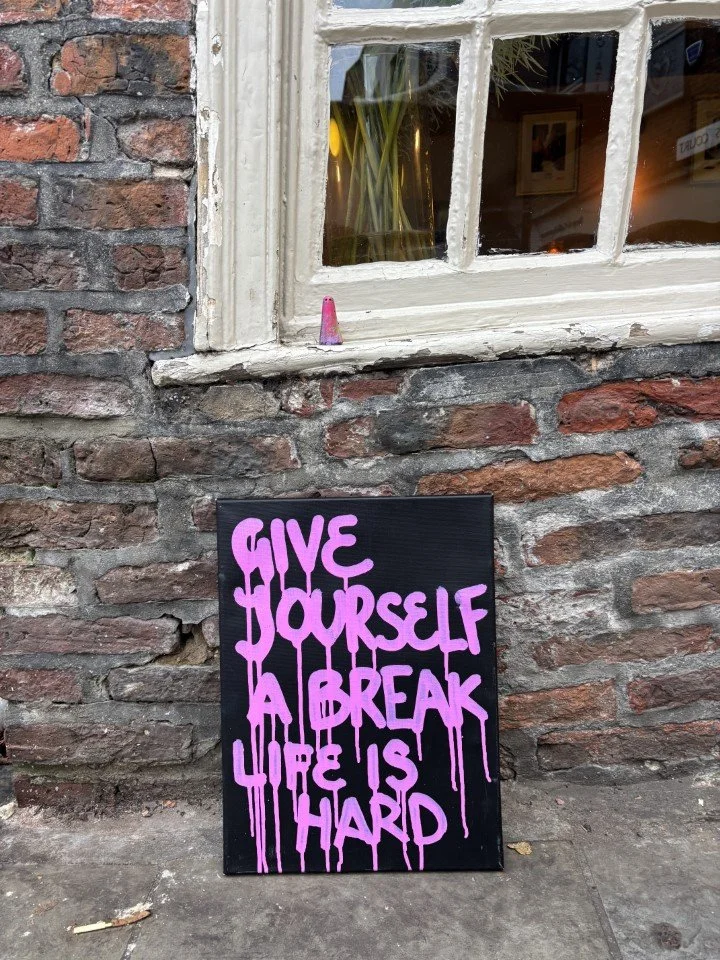 GIVE
YOURSELF
A BREAK
LIFE IS
HARD
COURT